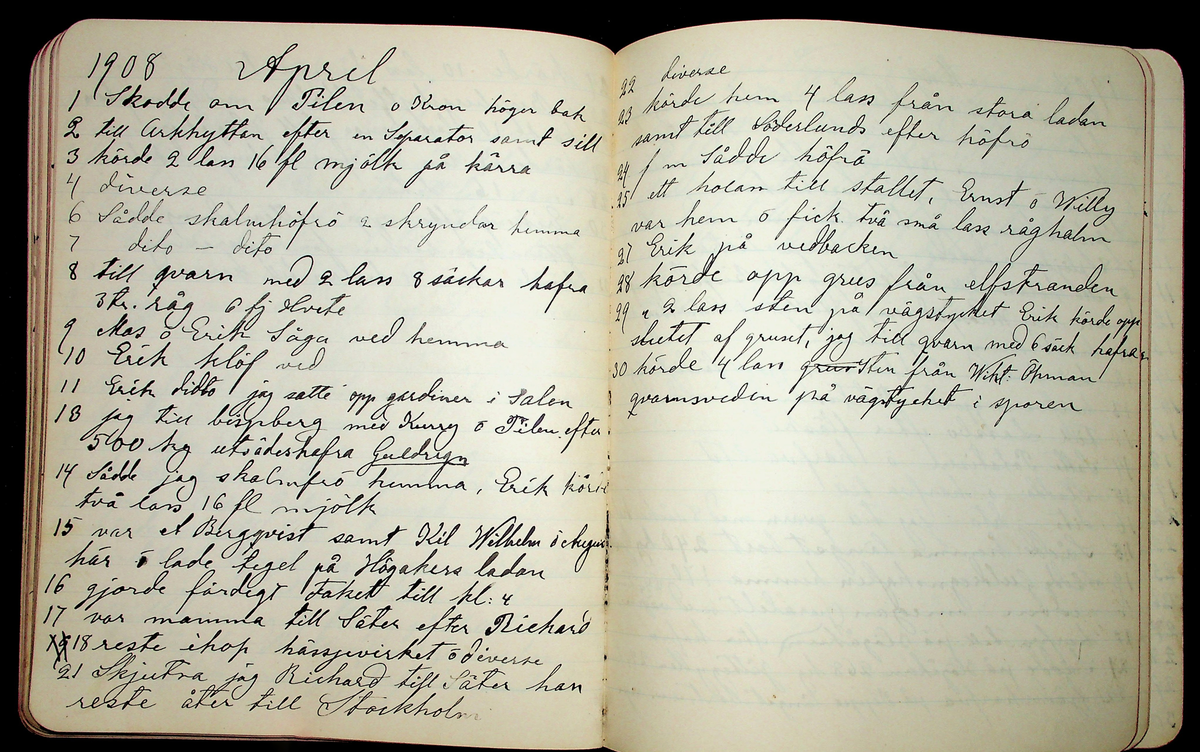 1908 April
1 Skodde om Pilen o Kron höger bak
2 till Arkhyttan efter en Separator samt sill
3 körde 2 lass 16 fl mjölk på kärra
4 diverse
6 Sådde skalmhöfrö 2 skryndor hemma
7 dito - dito
8 till qvarn med 2 lass 8 säckar hafra
3 tr. råg 6 fj Hvete
9 Mas o Erik Såga ved hemma
10 Erik klöf ved
11 Erik didto jag satte opp gardiner i Salen
13 jag till bispberg med Kurry o Pilen efter
500 kg utsädeshafra Guldregn
14 Sådde jag skalmfrö hemma, Erik körde
två lass 16 fl mjölk
15 var A Bergqvist samt Kil Wilhelm o
här o lade tegel på Högåkers ladan
16 gjorde färdigt taket till kl: 4
17 var mamma till Säter efter Richard
18 reste ihop hässjevirket o diverse
21 Skjutsa jag Richard till Säter han
reste åter till Stockholm
22 diverse
23 körde hem 4 lass från stora ladan
samt till Söderlunds efter höfrö
24 f m Sådde höfrö
25 ett holan till stallet, Ernst o Willy
var hem o fick två små lass råghalm
27 Erik på vedbacken
28 körde opp grus från elfstranden
29 " 2 lass sten på vägstycket Erik körde opp
slutet af gruset, jag till qvarn med 6 säck hafra
30 körde 4 lass grus Sten från Wikt: Öhman
qvarnsveden på vägstycket i sporen